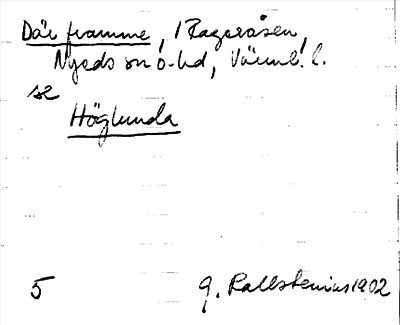 Där framme, i Rageråsen,
Nyeds sn o. hd, Värml. l.
se
Höglunda
5 G. Kallstenius 1902